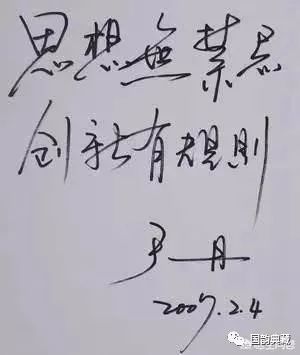 思想無禁忌
创新有規則
于丹
2007.2.4
国韵典藏